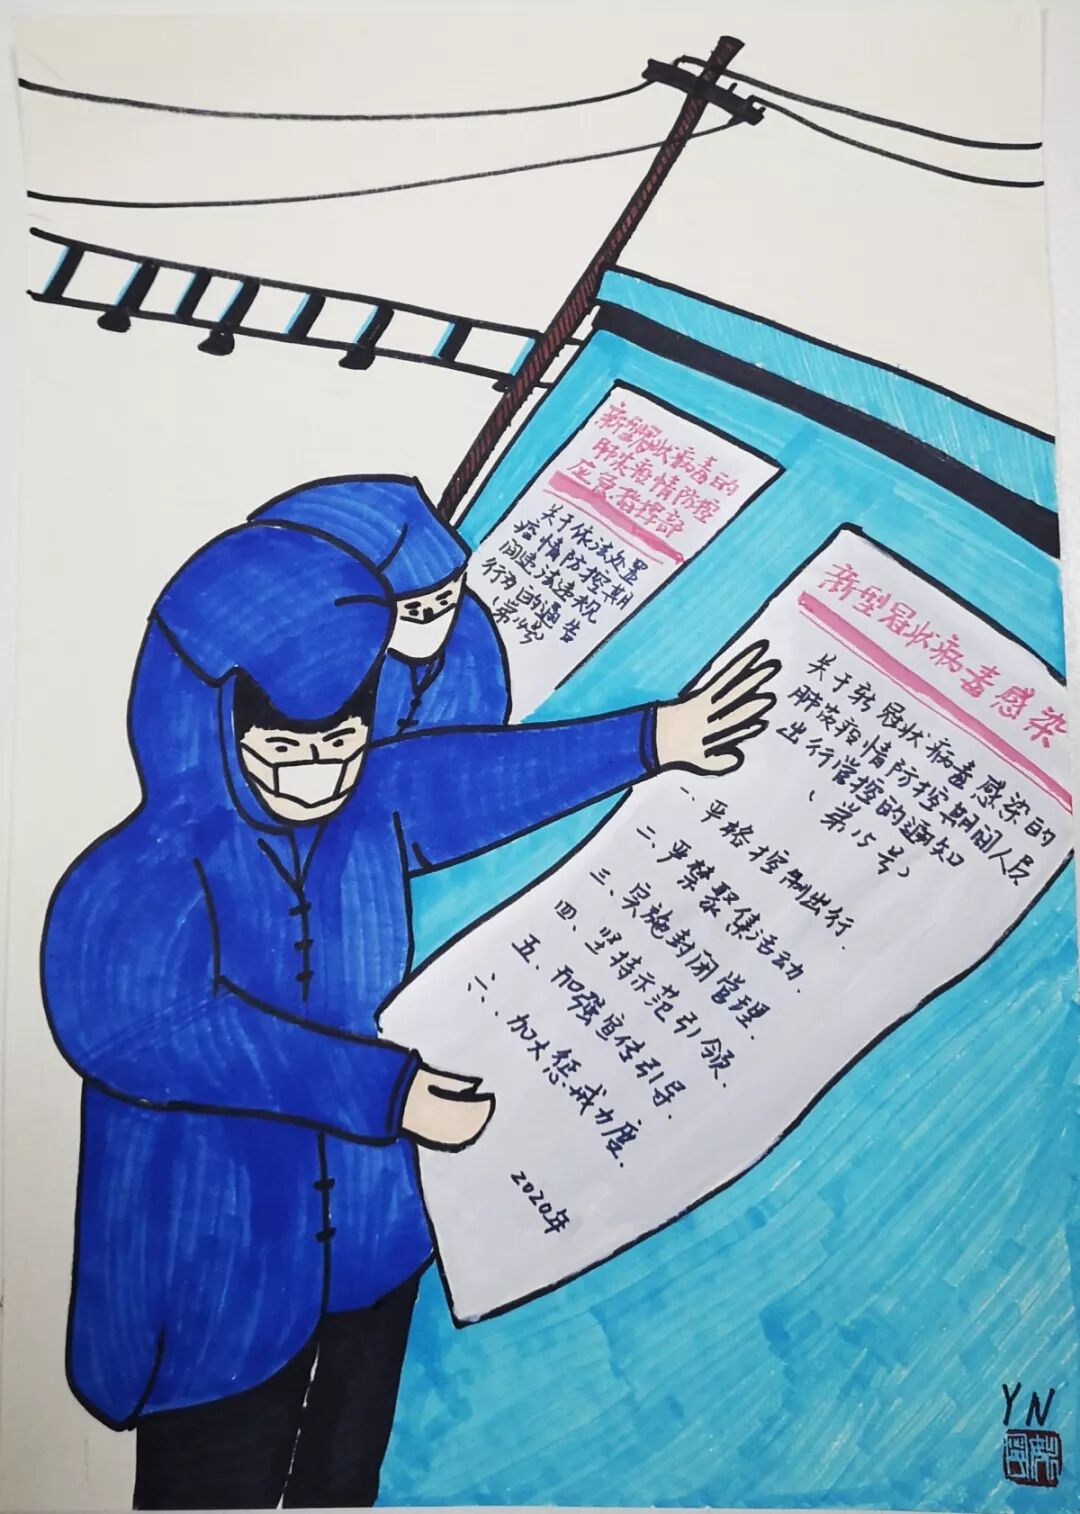 新型冠状病毒的
肺炎疫情防控
应急指挥部
关于依法处置
疫情防控期
间违法违规
行为的通告
(第14号)
新型冠状病毒感染
关于转冠状病毒感染的
肺炎疫情防控期间人员
出行管控的通知
(第15号)
一、严格控制出行.
二、严禁聚集活动.
三、实施封闭管理.
四、坚持示范引领.
五、加强宣传引导.
六、加大惩戒力度.
2020年
YN